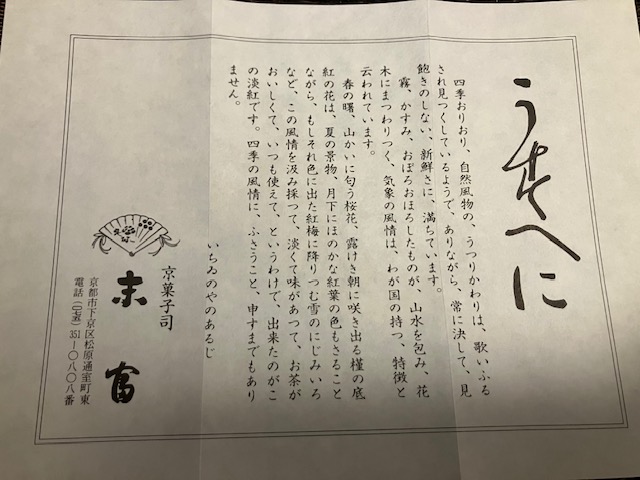 うすべに
四季おりおり、自然風物の、うつりかわりは、歌いふる
され見つくしているようで、ありながら、常に決して、見
飽きのしない、新鮮さに、満ちています。
霧、かすみ、おぼろおぼろしたものが、山水を包み、花
木にまつわりつく、気象の風情は、わが国の持つ、特徴と
云われています。
春の曙、山かいに匂う桜花、露けき朝に咲き出る槿の底
紅の花は、夏の景物、月下にほのかな紅葉の色もさること
ながら、もしそれ色に出た紅梅に降りつむ雪のにじみいろ
など、この風情を汲み採つて、淡くて味があつて、お茶が
おいしくて、いつも使えて、というわけで、出来たのがこ
の淡紅です。四季の風情に、ふさうこと、申すまでもあり
ません。
いちゐのやのあるじ
京菓子司
末富
京都市下京区松原通室町東
電話(〇七五)351-〇八〇八番